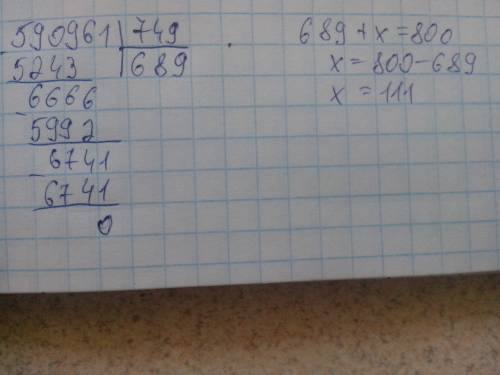 590961 | 749
5243 | 689
6666
- 5992
6741
- 6741
0
689 + x = 800
x = 800 - 689
x = 111